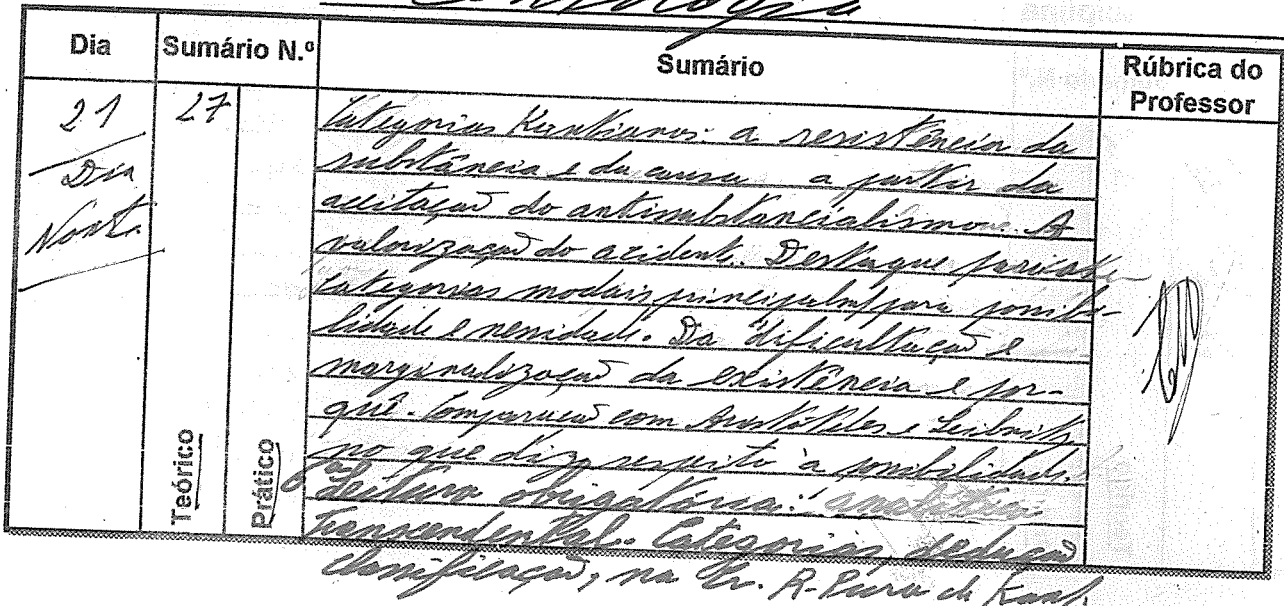 Ontologia
Dia
Sumário N.º
Sumário
Rúbrica do
Professor
21
Dia
Noct.
27
Teórico
Prático
Categorias Kantianas: a resistência da
substância e da causa a partir da
aceitação do antisubstancialismo. A
valorização do acidente. Destaque para as
categorias modais, principal/ para possibi-
lidade e necessidade. Da dificultação e
marginalização da existência e por-
quê. Comparação com Aristóteles e Leibnitz
no que diz respeito à possibilidade.
Leitura obrigatória: analítica
Transcendental. Categorias, dedução
classificação, na Cr. R. Pura de Kant.